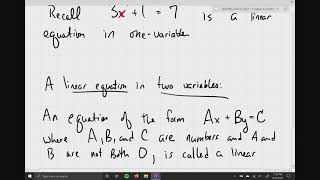 Recall 3x + 1 = 7 is a linear
equation in one-variable.
A linear equation in two variables:
An equation of the form Ax + By = C
where A, B, and C are numbers and A and
B are not Both 0, is called a linear